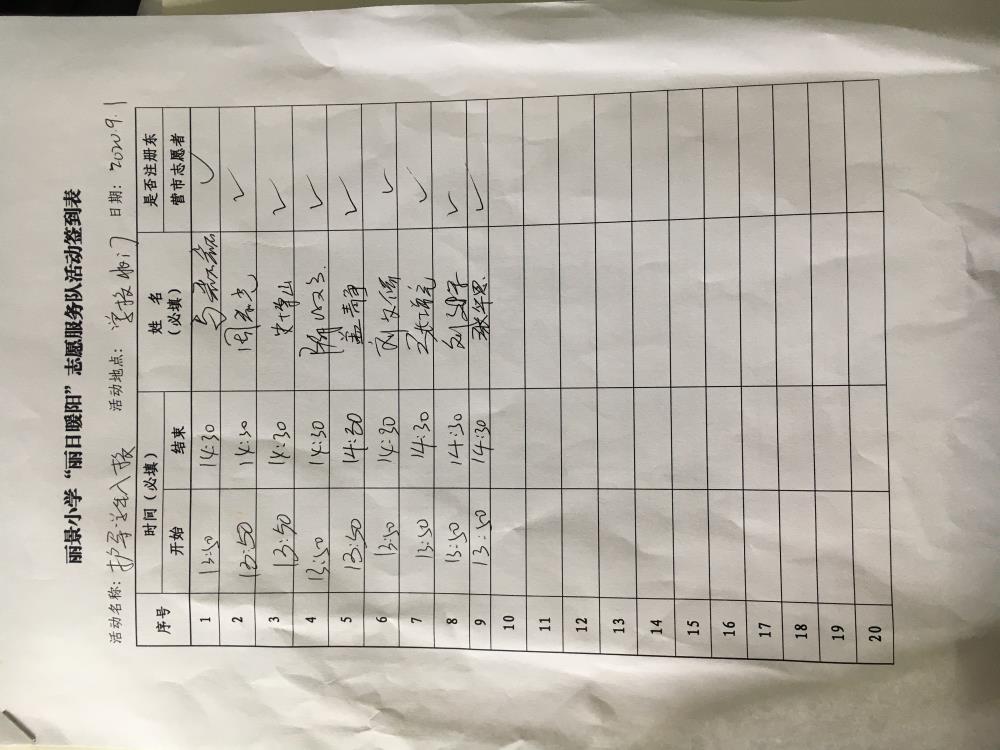 丽景小学“丽日暖阳”志愿服务队活动签到表
活动名称：护导学生入校 活动地点：学校北门 日期：2020.9.1
序号 时间（必填） 姓 名（必填） 是否注册东营市志愿者
开始 结束
1 13:50 14:30 ✓
2 13:50 14:30 ✓
3 13:50 14:30 ✓
4 13:50 14:30 ✓
5 13:50 14:30 盖青 ✓
6 13:50 14:30 刘文倩 ✓
7 13:50 14:30 ✓
8 13:50 14:30 ✓
9 13:50 14:30 ✓
10
11
12
13
14
15
16
17
18
19
20